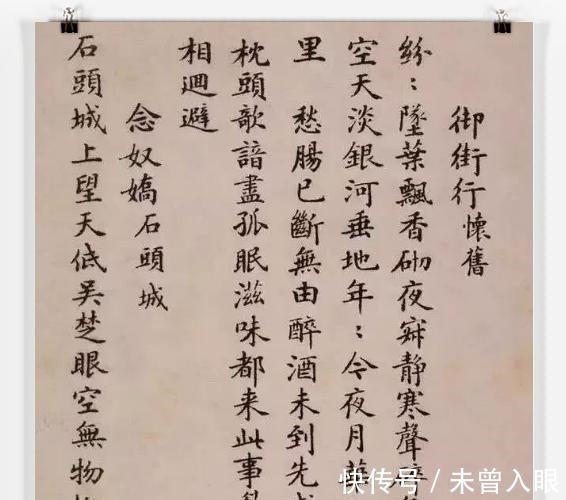 御街行 懷舊
紛：墜葉飄香砌夜寂靜寒聲
空天淡銀河垂地年：今夜月
里 愁腸已斷無由醉酒未到先
枕頭欹諳盡孤眠滋味都来此事
相迴避
念奴嬌 石頭城
石頭城上望天低吴楚眼空無物
快传号 / 未曾入眼